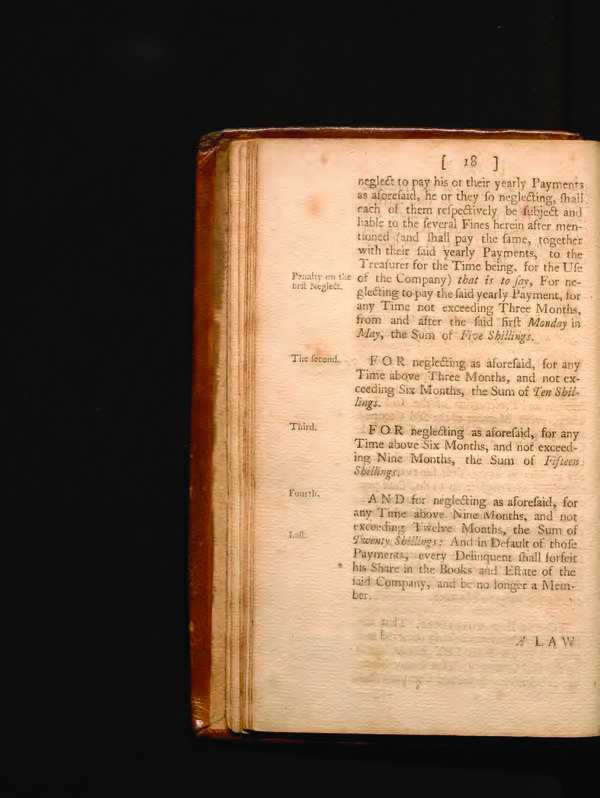 [ 18 ]
neglect to pay his or their yearly Payments
as aforeſaid, he or they ſo neglecting, ſhall
each of them reſpectively be ſubject and
liable to the ſeveral Fines herein after men-
tioned (and ſhall pay the ſame, together
with their ſaid yearly Payments, to the
Treaſurer for the Time being, for the Uſe
Penalty on the
firſt Neglect.
of the Company) that is to ſay, For ne-
glecting to pay the ſaid yearly Payment, for
any Time not exceeding Three Months,
from and after the ſaid firſt Monday in
May, the Sum of Five Shillings.
The ſecond.
FOR neglecting as aforeſaid, for any
Time above Three Months, and not ex-
ceeding Six Months, the Sum of Ten Shil-
lings.
Third.
FOR neglecting as aforeſaid, for any
Time above Six Months, and not exceed-
ing Nine Months, the Sum of Fifteen
Shillings.
Fourth.
AND for neglecting as aforeſaid, for
any Time above Nine Months, and not
exceeding Twelve Months, the Sum of
Laſt.
Twenty Shillings: And in Default of thoſe
Payments, every Delinquent ſhall forfeit
his Share in the Books and Eſtate of the
ſaid Company, and be no longer a Mem-
ber.
A LAW